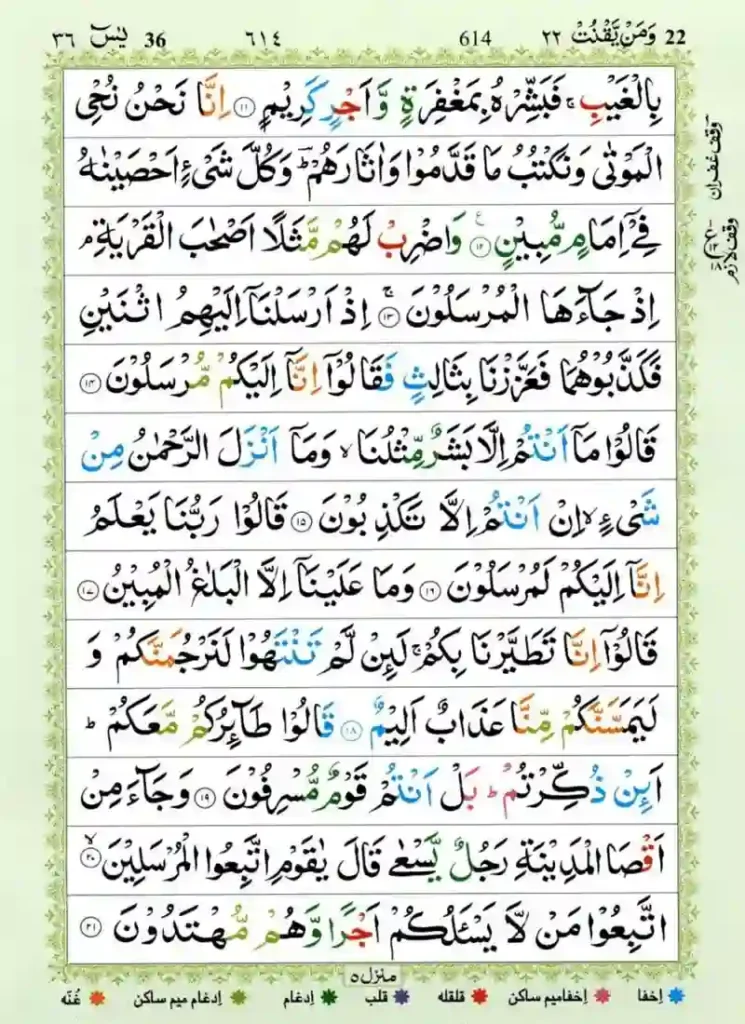 22 وَمَن يَّقْنُتْ ٢٢ 614 ٦١٤ 36 يٰسٓ ٣٦
بِالْغَيْبِ ۚ فَبَشِّرْهُ بِمَغْفِرَةٍ وَّاَجْرٍ كَرِيْمٍ ﴿١١﴾ اِنَّا نَحْنُ نُحْیِ
الْمَوْتٰى وَنَكْتُبُ مَا قَدَّمُوْا وَاٰثَارَهُمْ ؕ وَكُلَّ شَیْءٍ اَحْصَيْنٰهُ
فِیْۤ اِمَامٍ مُّبِيْنٍ ﴿١٢﴾ ع وَاضْرِبْ لَهُمْ مَّثَلًا اَصْحٰبَ الْقَرْيَةِ ۘ
اِذْ جَآءَهَا الْمُرْسَلُوْنَ ﴿١٣﴾ ۚ اِذْ اَرْسَلْنَاۤ اِلَيْهِمُ اثْنَيْنِ
فَكَذَّبُوْهُمَا فَعَزَّزْنَا بِثَالِثٍ فَقَالُوْۤا اِنَّاۤ اِلَيْكُمْ مُّرْسَلُوْنَ ﴿١٤﴾
قَالُوْا مَاۤ اَنْتُمْ اِلَّا بَشَرٌ مِّثْلُنَا ۙ وَمَاۤ اَنْزَلَ الرَّحْمٰنُ مِنْ
شَیْءٍ ۙ اِنْ اَنْتُمْ اِلَّا تَكْذِبُوْنَ ﴿١٥﴾ قَالُوْا رَبُّنَا يَعْلَمُ
اِنَّاۤ اِلَيْكُمْ لَمُرْسَلُوْنَ ﴿١٦﴾ وَمَا عَلَيْنَاۤ اِلَّا الْبَلٰغُ الْمُبِيْنُ ﴿١٧﴾
قَالُوْۤا اِنَّا تَطَيَّرْنَا بِكُمْ ۚ لَئِنْ لَّمْ تَنْتَهُوْا لَنَرْجُمَنَّكُمْ وَ
لَيَمَسَّنَّكُمْ مِّنَّا عَذَابٌ اَلِيْمٌ ﴿١٨﴾ قَالُوْا طَآئِرُكُمْ مَّعَكُمْ ؕ
اَئِنْ ذُكِّرْتُمْ ؕ بَلْ اَنْتُمْ قَوْمٌ مُّسْرِفُوْنَ ﴿١٩﴾ وَجَآءَ مِنْ
اَقْصَا الْمَدِيْنَةِ رَجُلٌ يَّسْعٰى قَالَ يٰقَوْمِ اتَّبِعُوا الْمُرْسَلِيْنَ ﴿٢٠﴾ ۙ
اتَّبِعُوْا مَنْ لَّا يَسْئَلُكُمْ اَجْرًا وَّهُمْ مُّهْتَدُوْنَ ﴿٢١﴾
وقف غفران
وقف لازم
منزل ٥
اِخفا اِخفامیم ساکن قلقله قلب اِدغام اِدغام میم ساکن غُنّه